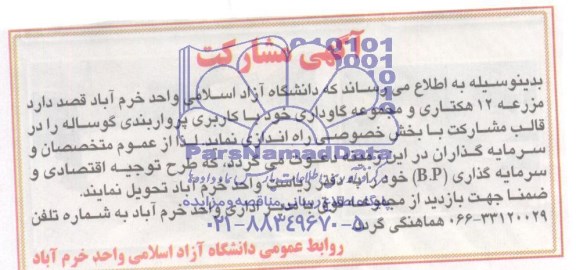 آگهی مشارکت
بدینوسیله به اطلاع می رساند که دانشگاه آزاد اسلامی واحد خرم آباد قصد دارد
مزرعه ۱۲ هکتاری و مجموعه گاوداری خود با کاربری پرواربندی گوساله را در
قالب مشارکت با بخش خصوصی راه اندازی نماید لذا از عموم متخصصان و
سرمایه گذاران در این زمینه دعوت می گردد که طرح توجیه اقتصادی و
سرمایه گذاری (B.P) خود را به دفتر ریاست واحد خرم آباد تحویل نمایند.
ضمنا جهت بازدید از مجموعه فوق با مدیر اداری واحد خرم آباد به شماره تلفن
۰۶۶-۳۳۱۲۰۰۲۹ هماهنگی گردد.
روابط عمومی دانشگاه آزاد اسلامی واحد خرم آباد
ParsNamadData
پایگاه اطلاع رسانی مناقصه و مزایده
۰۲۱-۸۸۳۴۹۶۷۰-۵